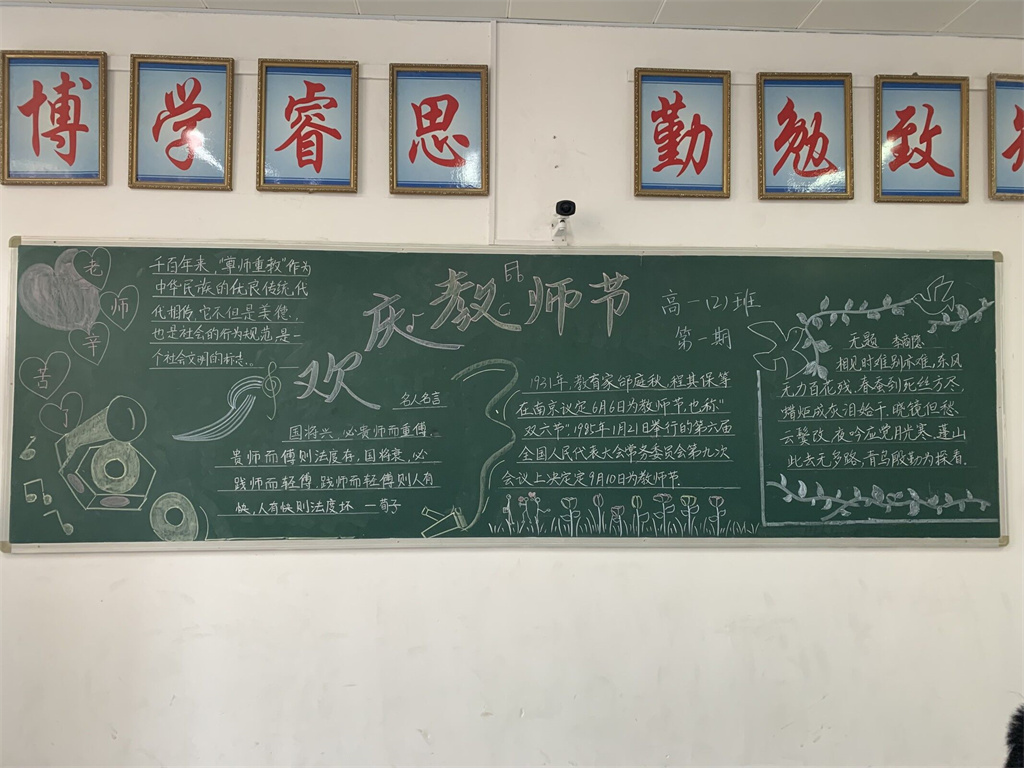 博学睿思
勤勉致
老
师
辛
苦
了
千百年来，"尊师重教"作为
中华民族的优良传统代
代相传，它不但是美德、
也是社会的行为规范，是一
个社会文明的标志。
欢庆教师节
高一(2)班
第一期
名人名言
国将兴，必贵师而重傅，
贵师而傅则法度存，国将衰，必
贱师而轻傅，贱师而轻傅则人有
快，人有快则法度坏 —荀子
1931年，教育家邰庭秋，程其保等
在南京议定6月6日为教师节也称"
双六节"，1985年1月21日举行的第六届
全国人民代表大会常务委员会第九次
会议上决定定9月10日为教师节
无题 李商隐
相见时难别亦难，东风
无力百花残，春蚕到死丝方尽，
蜡炬成灰泪始干，晓镜但愁
云鬓改，夜吟应觉月光寒，蓬山
此去无多路，青鸟殷勤为探看